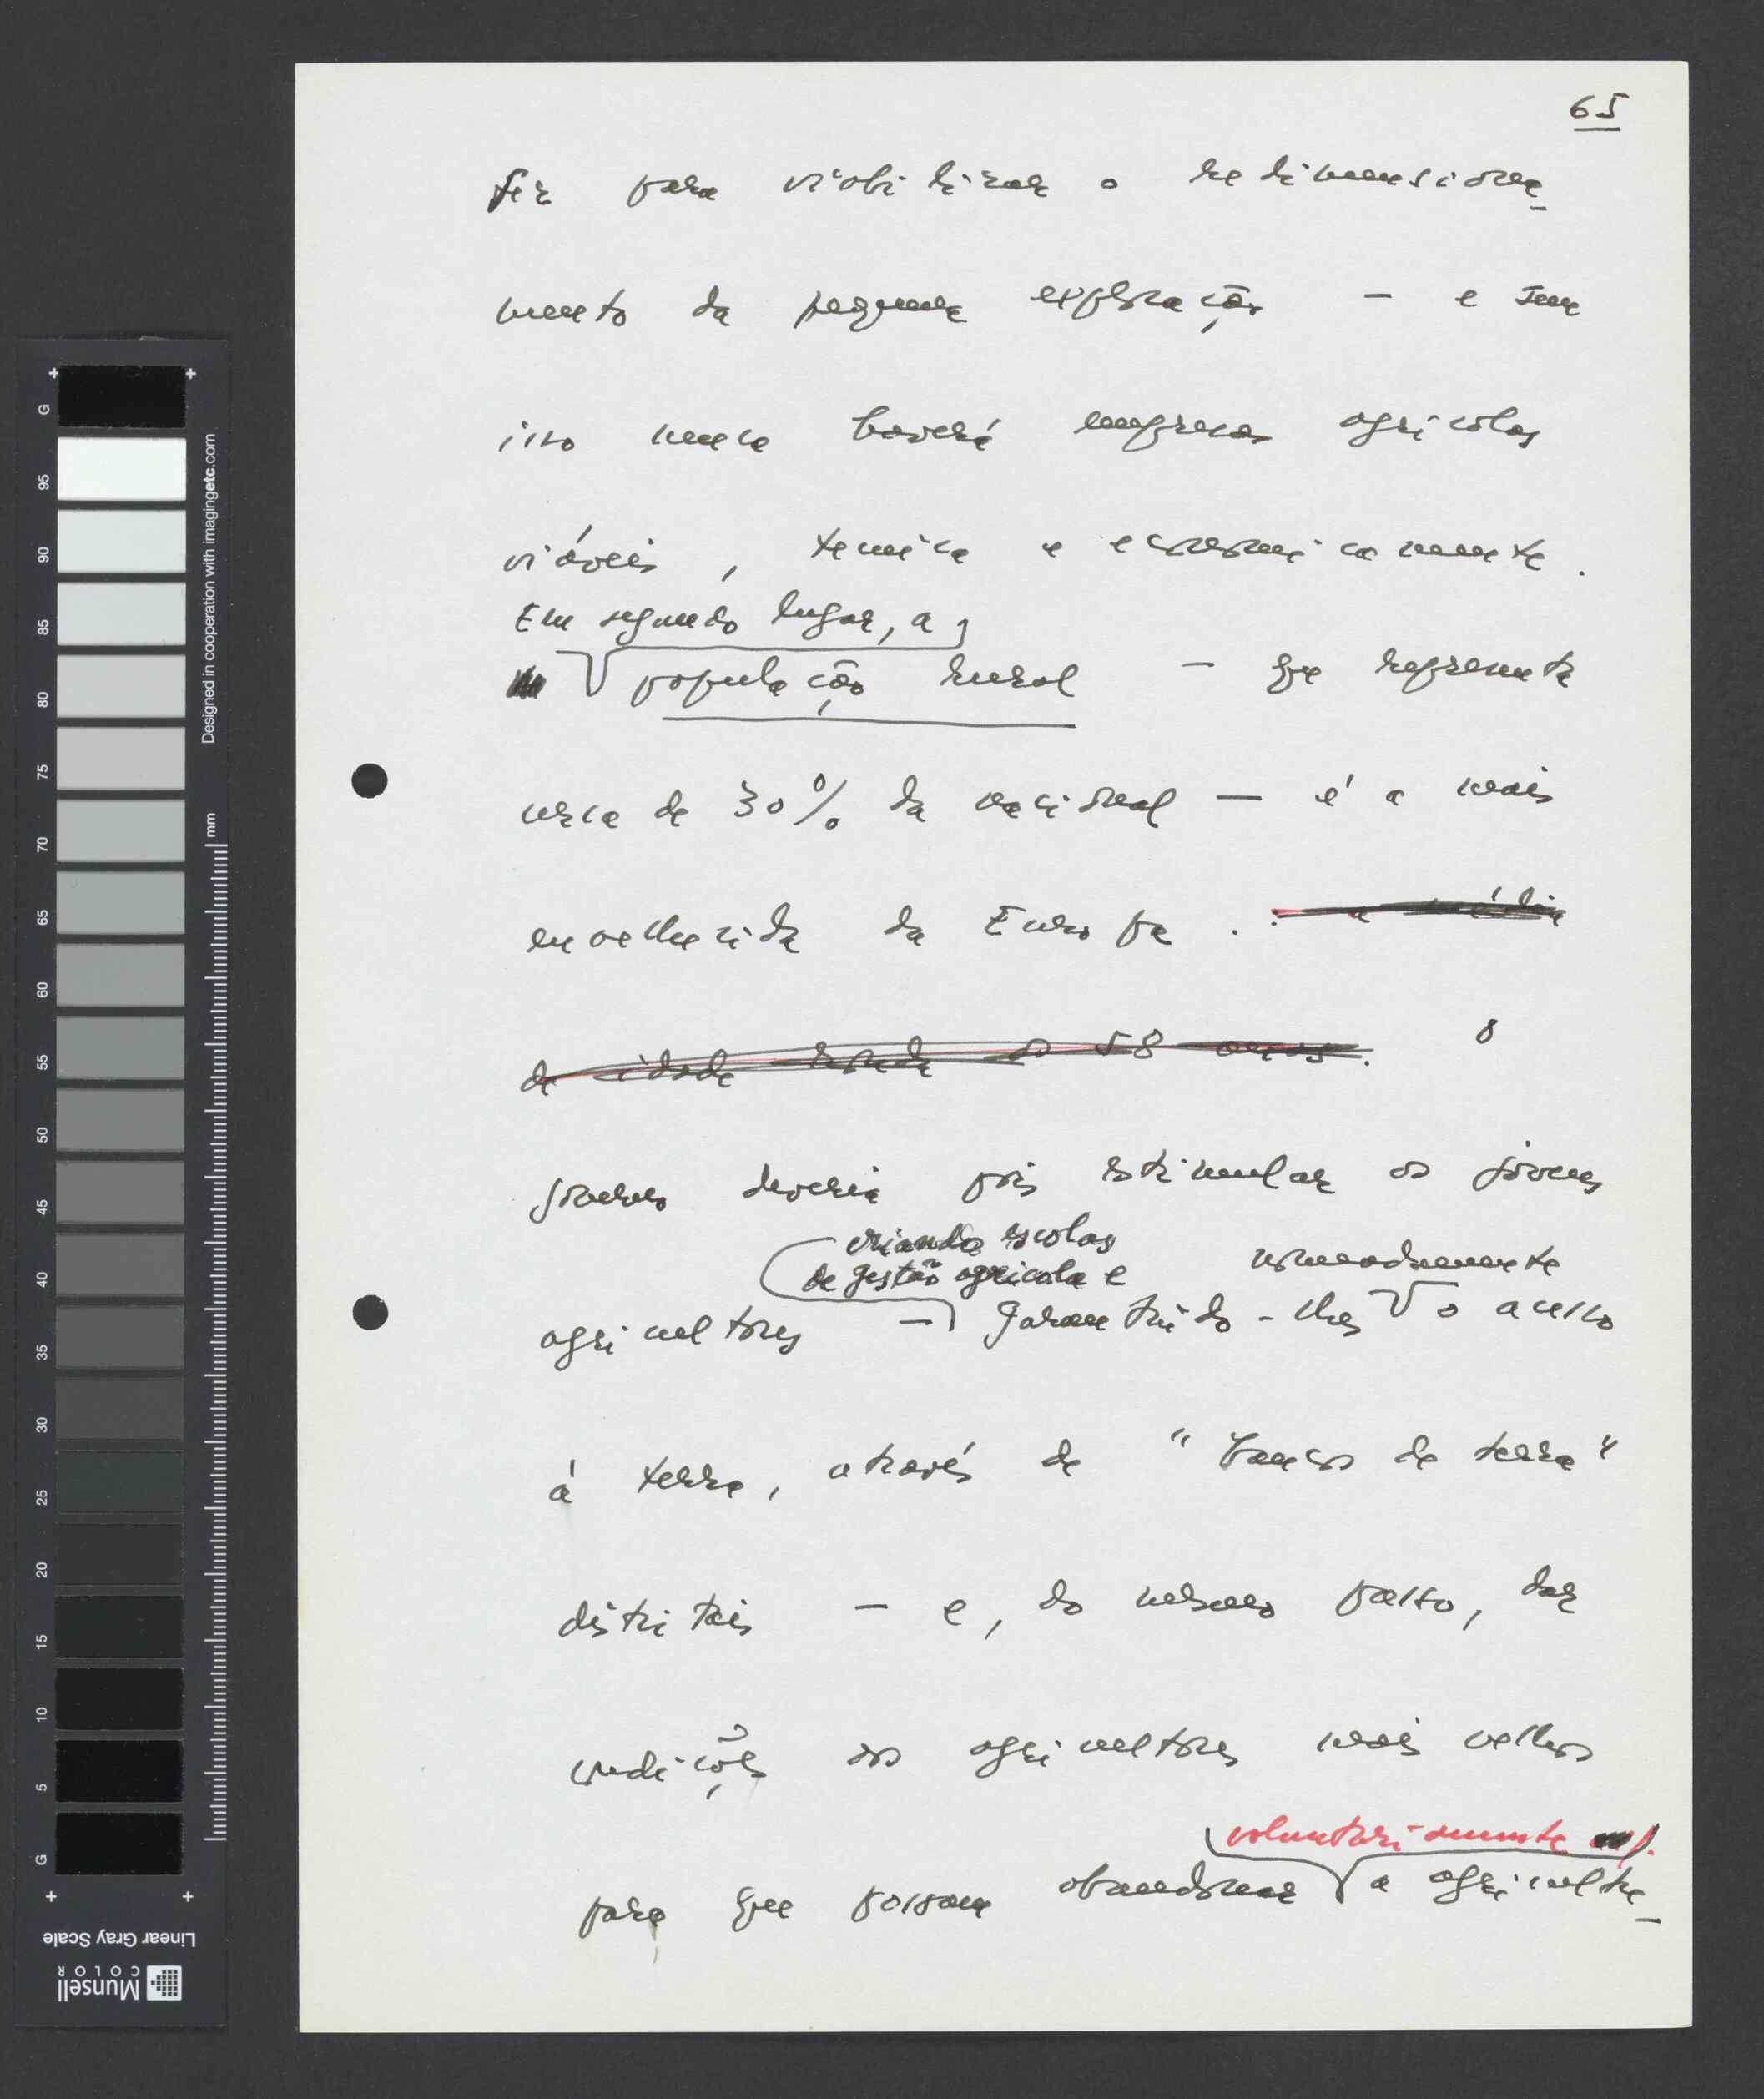 65
fez para viabilizar o redimensiona
mento da pequena exploração – e sem
isso nunca haverá empresas agrícolas
viáveis, técnica e economicamente.
Em segundo lugar, a
população rural – que representa
cerca de 30% da nacional – é a mais
envelhecida da Europa. : a média
de idade ronda os 58 anos. O
governo deveria pois estimular os jovens
criando escolas
de gestão agrícola e nomeadamente
agricultores – garantindo-lhes o acesso
à terra, através de "bancos de terra"
distritais – e, do mesmo passo, dar
condições aos agricultores mais velhos
voluntariamente
para que possam abandonar a agricultu
G 95 90 85 80 75 70 65 60 55 50 45 40 35 30 25 20 15 10 5 G
Designed in cooperation with imagingetc.com
mm
Linear Gray Scale
Munsell
COLOR